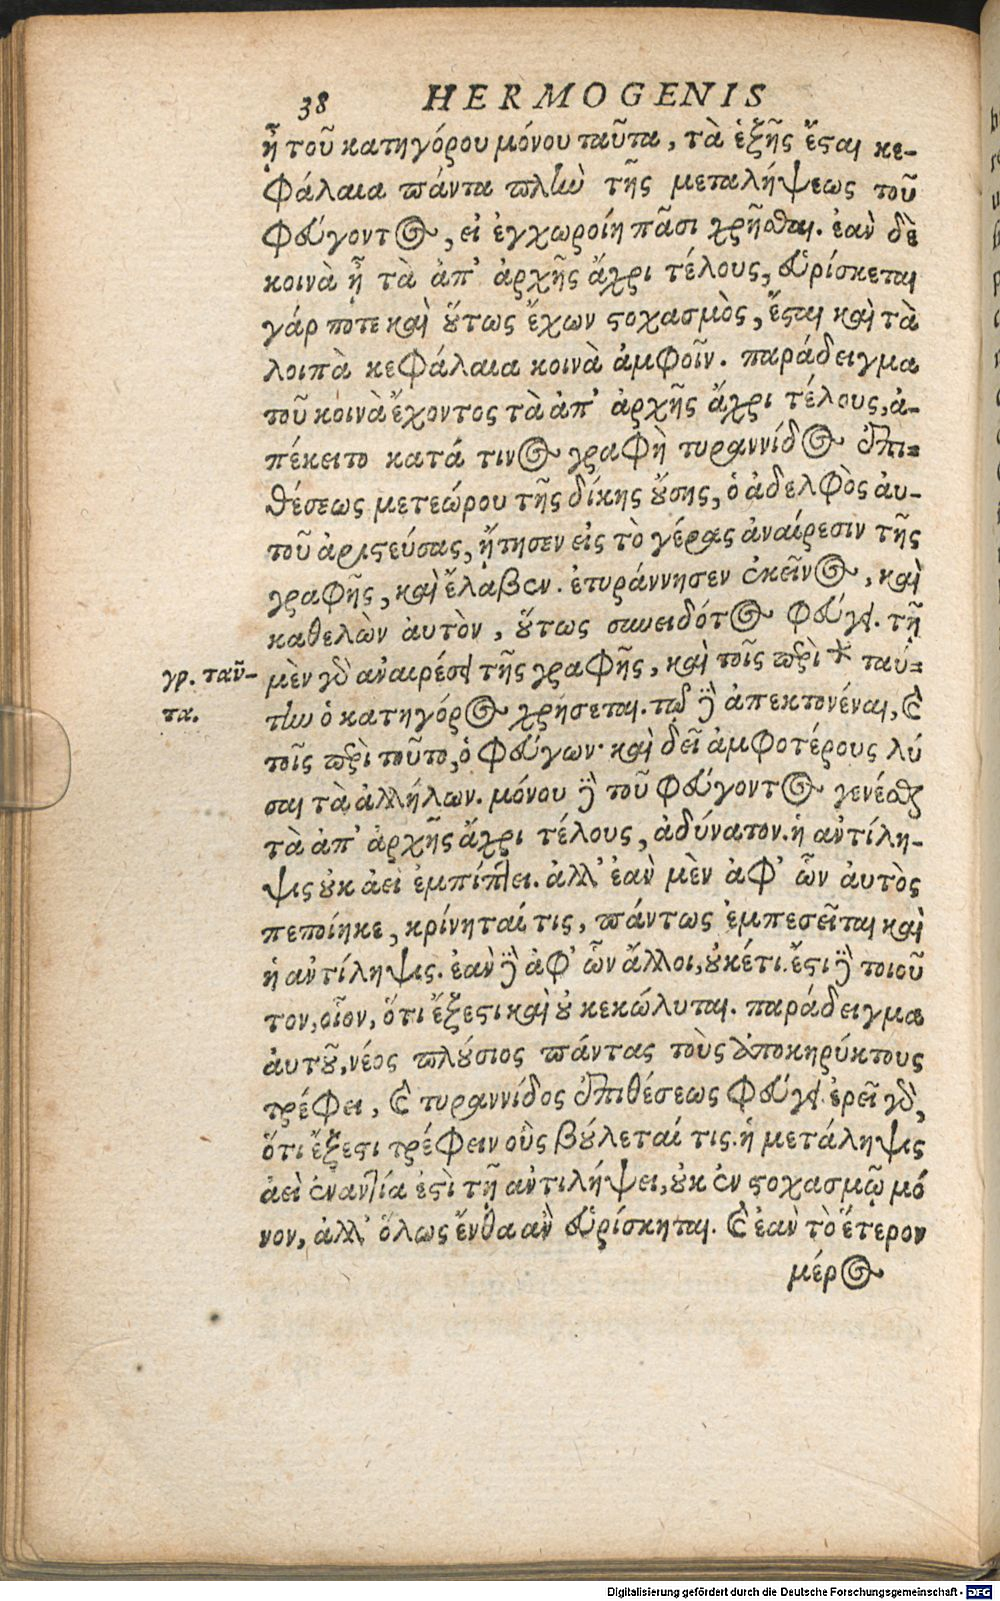 38 HERMOGENIS
ᾖ τοῦ κατηγόρου μόνου ταῦτα, τὰ ἑξῆς ἔϛαι κε-
φάλαια πάντα πλὴν τῆς μεταλήψεως τοῦ
φεύγοντος, εἰ ἐγχωροίη πᾶσι χρῆσθαι. ἐὰν δὲ
κοινὰ ᾖ τὰ ἀπ' ἀρχῆς ἄχρι τέλους, εὑρίσκεται
γάρ ποτε καὶ ὅτως ἔχων ϛοχασμὸς, ἔϛαι καὶ τὰ
λοιπὰ κεφάλαια κοινὰ ἀμφοῖν. παράδειγμα
τοῦ κοινὰ ἔχοντος τὰ ἀπ' ἀρχῆς ἄχρι τέλους, ἀ-
πέκειτο κατά τινος γραφὴ τυραννίδος ἐπι-
θέσεως μετεώρου τῆς δίκης ȣ̓́σης, ὁ ἀδελφὸς ἀυ-
τοῦ ἀριϛεύσας, ᾔτησεν εἰς τὸ γέρας ἀναίρεσιν τῆς
γραφῆς, καὶ ἔλαβεν. ἐτυράννησεν ἐκεῖνος, καὶ
καθελὼν ἀυτὸν, ȣ̔́τως συνειδότος φεύγει. τῇ
γρ. ταῦ-
τα.
μὲν γὸ ἀναιρέσει τῆς γραφῆς, καὶ τοῖς περὶ * ταύ-
την ὁ κατηγόρος χρήσεται. τῷ δὲ ἀπεκτονέναι, καὶ
τοῖς περὶ τοῦτο, ὁ φεύγων· καὶ δεῖ ἀμφοτέρους λύ
σαι τὰ ἀλλήλων. μόνου δὲ τοῦ φεύγοντος γενέσθαι
τὰ ἀπ' ἀρχῆς ἄχρι τέλους, ἀδύνατον. ἡ ἀντίλη-
ψις ȣ̓κ ἀεὶ ἐμπίπτει. ἀλλ' ἐὰν μὲν ἀφ' ὧν ἀυτὸς
πεποίηκε, κρίνηταί τις, πάντως ἐμπεσεῖται καὶ
ἡ ἀντίληψις. ἐὰν δὲ ἀφ' ὧν ἄλλοι, ȣ̓κέτι. ἔϛι δὲ τοιοῦ
τον, οἷον, ὅτι ἔξεϛι καὶ ȣ̓ κεκώλυται. παράδειγμα
ἀυτȣ͂, νέος πλȣ́σιος πάντας τοὺς ἀποκηρύκτους
τρέφει, καὶ τυραννίδος ἐπιθέσεως φεύγει. ἐρεῖ γὸ,
ὅτι ἔξεϛι τρέφειν οὓς βȣ́λεταί τις. ἡ μετάληψις
ἀεὶ ἐναντία ἐϛὶ τῇ ἀντιλήψει, ȣ̓κ ἐν ϛοχασμῷ μό
νον, ἀλλ' ὅλως ἔνθα ἂν εὑρίσκηται. καὶ ἐὰν τὸ ἕτερον
μέρος
Digitalisierung gefördert durch die Deutsche Forschungsgemeinschaft - DFG